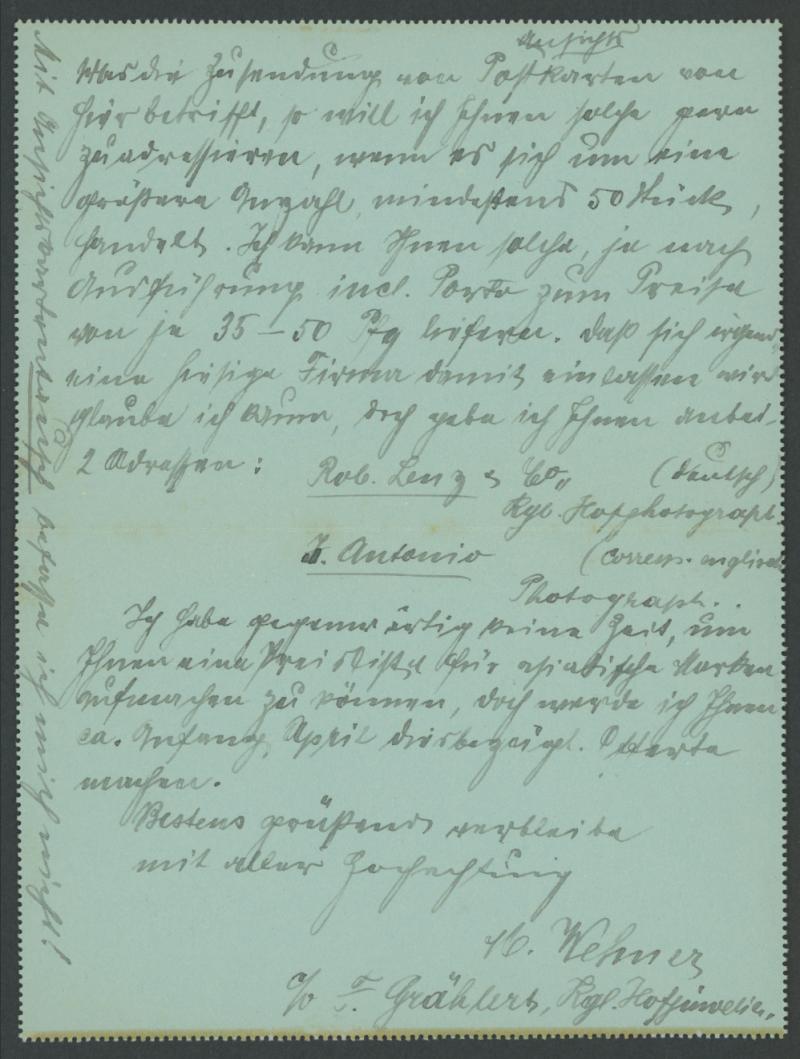 Ansichts
Was die Zusendung von Postkarten von
hier betrifft, so will ich Ihnen solche gern
zuadressieren, wenn es sich um eine
größere Anzahl, mindestens 50 Stück,
handelt. Ich kann Ihnen solche, je nach
Ausführung incl. Porto zum Preise
von je 35–50 Pfg liefern. Daß sich irgend
eine hiesige Firma damit einlassen wird
glaube ich kaum, doch gebe ich Ihnen anbei
2 Adressen:
Rob. Lenz & Co,, (deutsch)
Kgl. Hofphotograph.
J. Antonio (corresp. englisch
Photograph.
Ich habe gegenwärtig keine Zeit, um
Ihnen eine Preisliste für asiatische Marken
aufmachen zu können, doch werde ich Ihnen
ca. Anfang April diesbezügl. Offerte
machen.
Bestens grüßend verbleibe
mit aller Hochachtung
Wehner
c/o F. Grählert, Kgl. Hofjuwelier.
Mit Ansichtskartentausch befasse ich mich nicht!